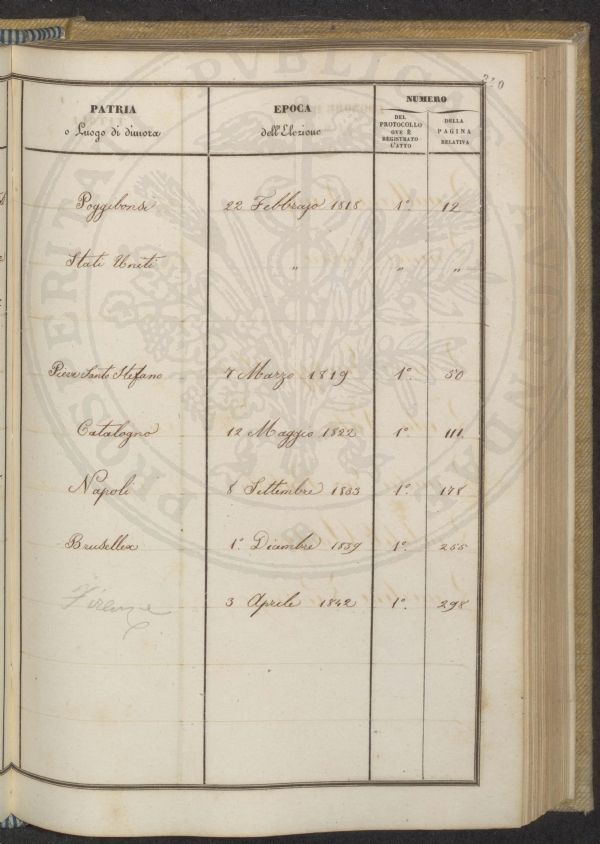 210
PATRIA
o Luogo di dimora
EPOCA
dell'Elezione
NUMERO
DEL
PROTOCOLLO
OVE È
REGISTRATO
L'ATTO
DELLA
PAGINA
RELATIVA
Poggibonsi 22 Febbrajo 1818 1° 12
Stati Uniti " " "
Pieve Santo Stefano 7 Marzo 1819 1° 50
Catalogno 12 Maggio 1822 1° 111
Napoli 8 Settembre 1833 1° 178
Brusellex 1° Dicembre 1839 1° 255
Firenze 3 Aprile 1842 1° 298
PROSPERITATI PVBLICAE AVGENDAE